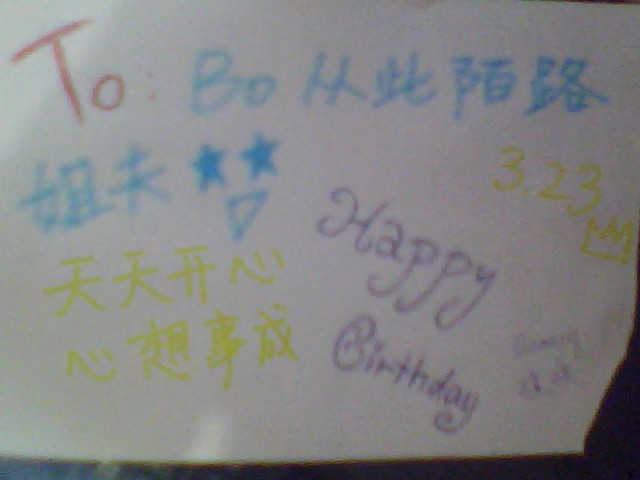 To: Bo 从此陌路
姐夫
3.23
天天开心
心想事成
Happy
Birthday